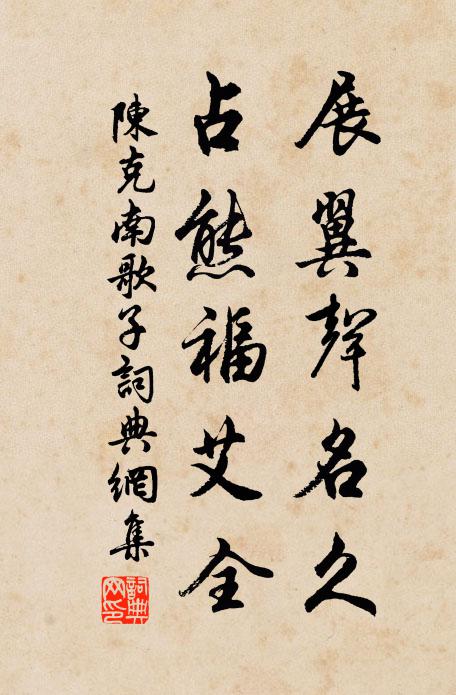 展翼聲名久
占熊福艾全
陳克南歌子詞典網集
詞典網印